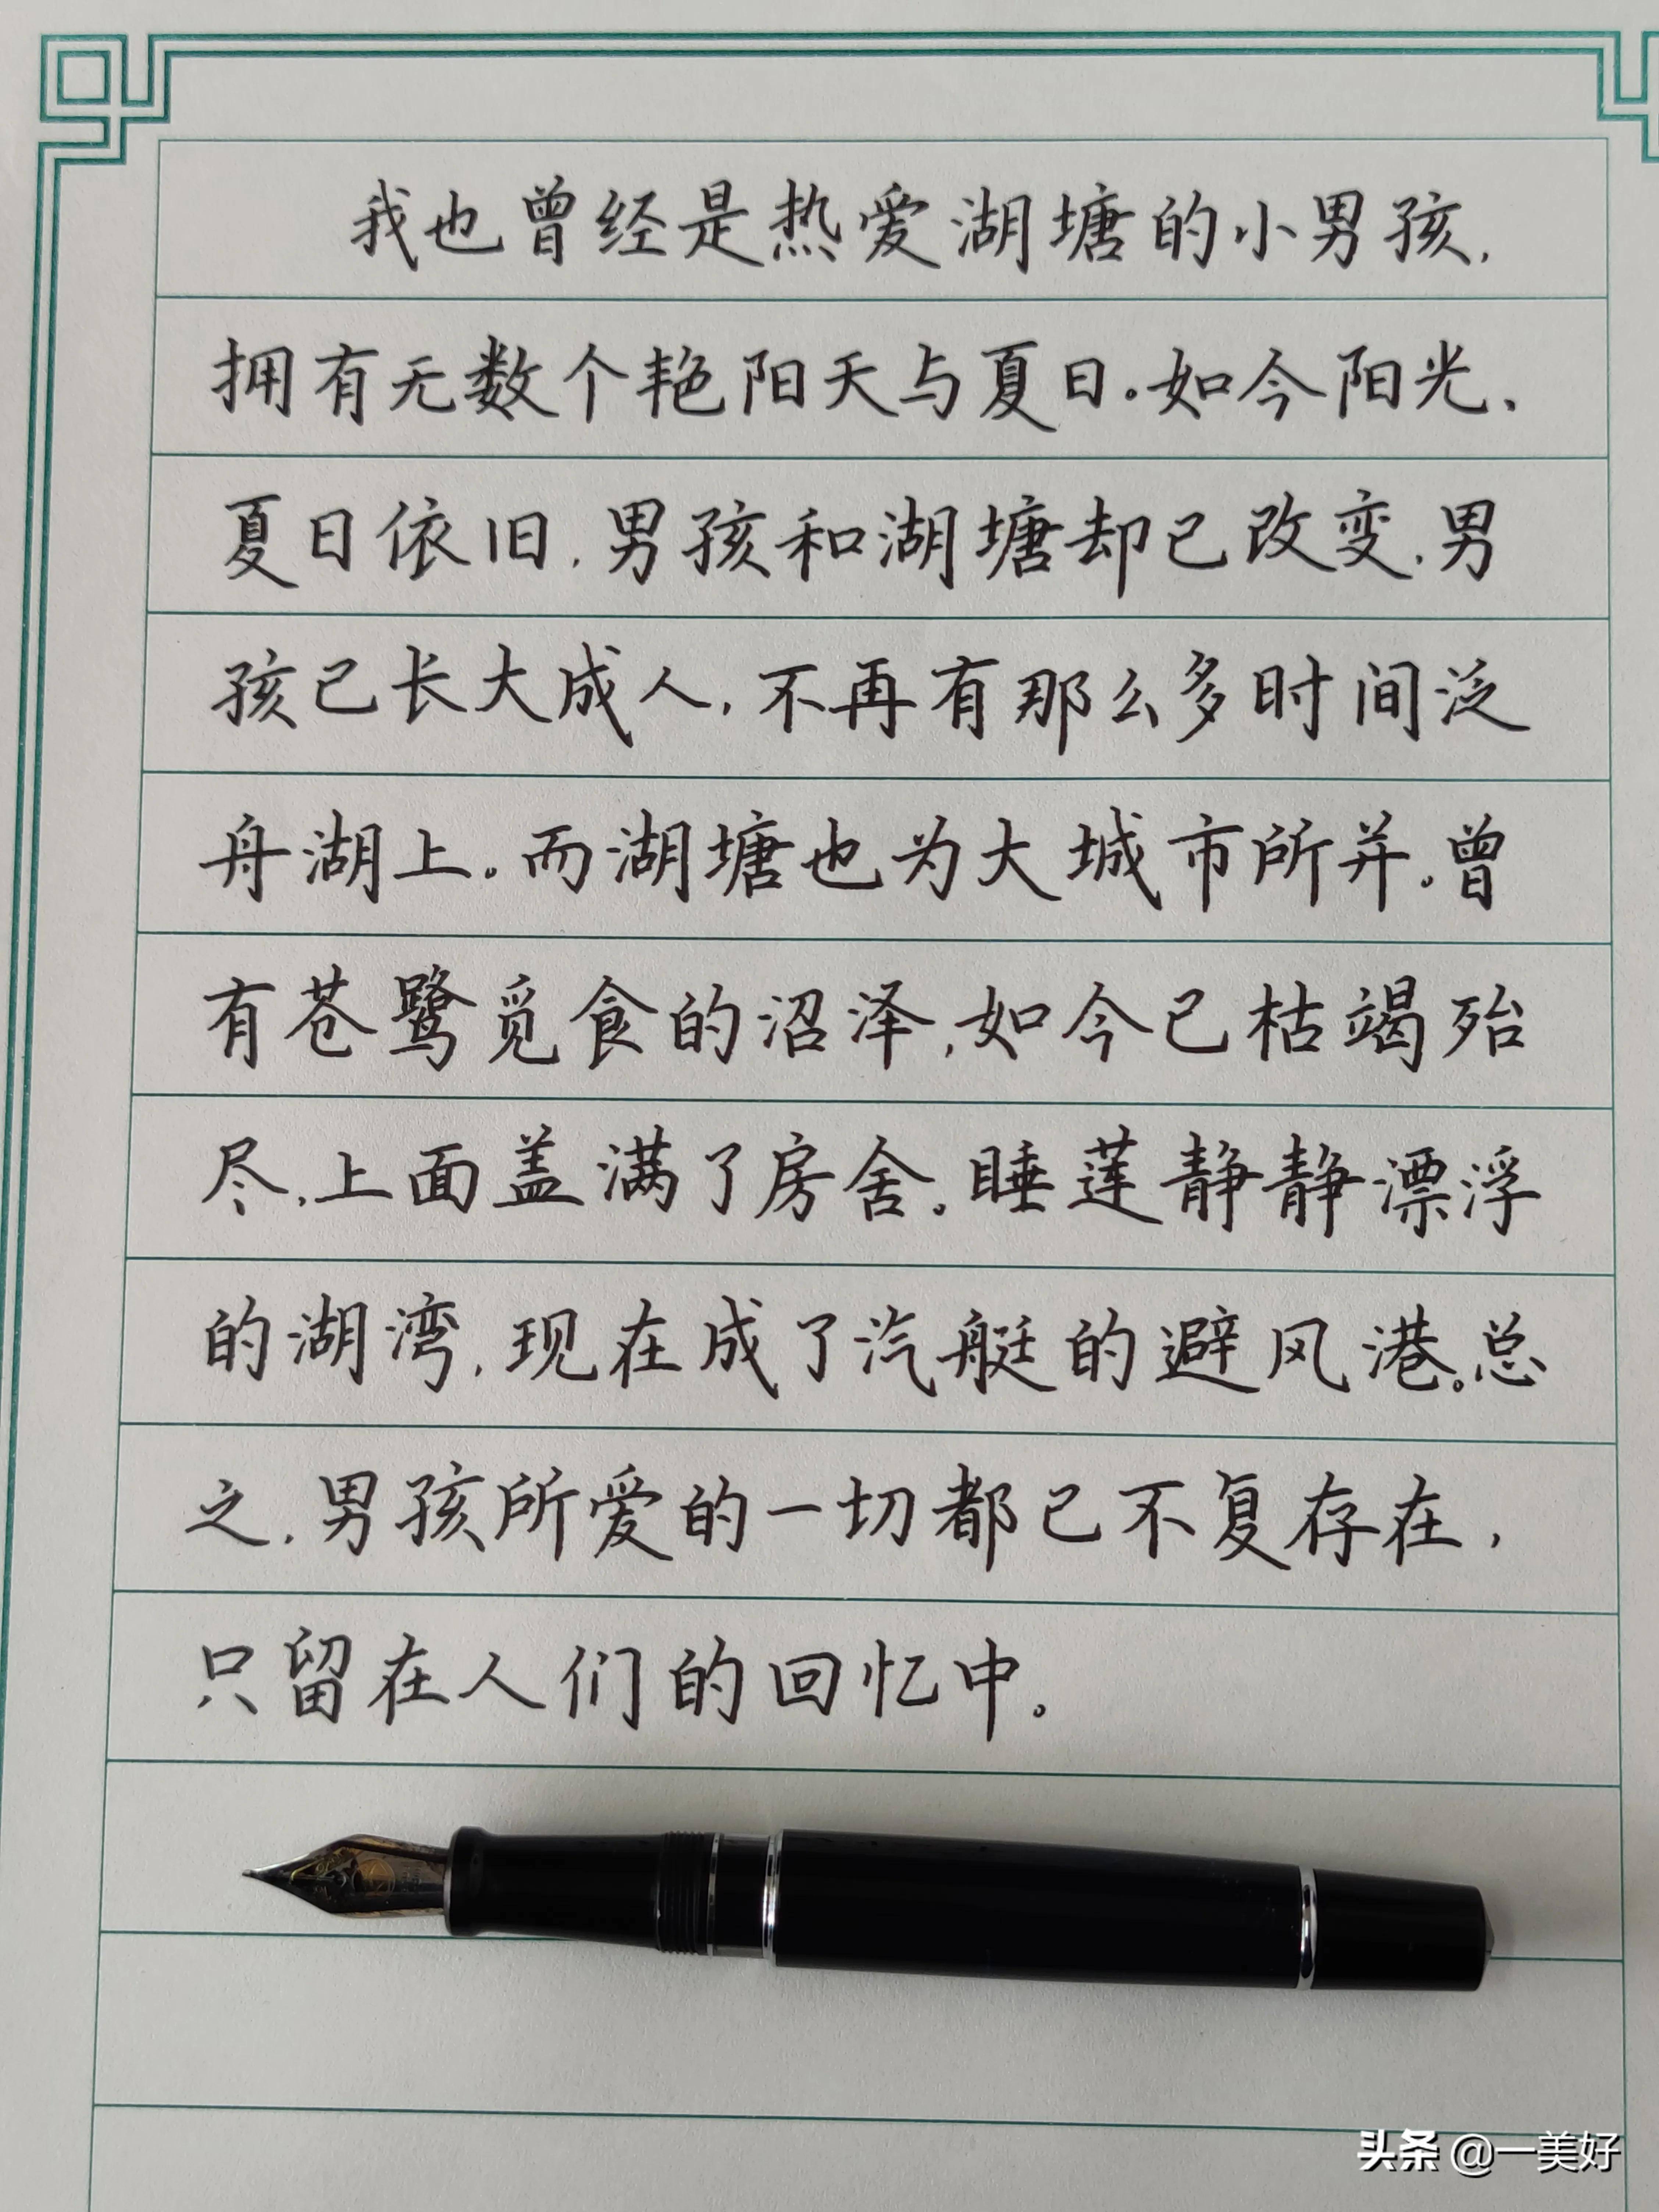 我也曾经是热爱湖塘的小男孩，
拥有无数个艳阳天与夏日。如今阳光、
夏日依旧，男孩和湖塘却已改变，男
孩已长大成人，不再有那么多时间泛
舟湖上。而湖塘也为大城市所并。曾
有苍鹭觅食的沼泽，如今已枯竭殆
尽，上面盖满了房舍。睡莲静静漂浮
的湖湾，现在成了汽艇的避风港。总
之，男孩所爱的一切都已不复存在，
只留在人们的回忆中。
头条 @一美好